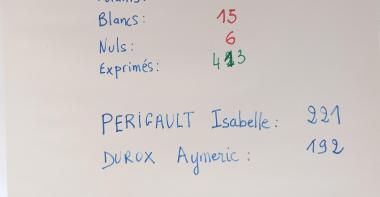 Blancs : 15
Nuls : 6
Exprimés : 413
PERIGAULT Isabelle : 221
DUROX Aymeric : 192